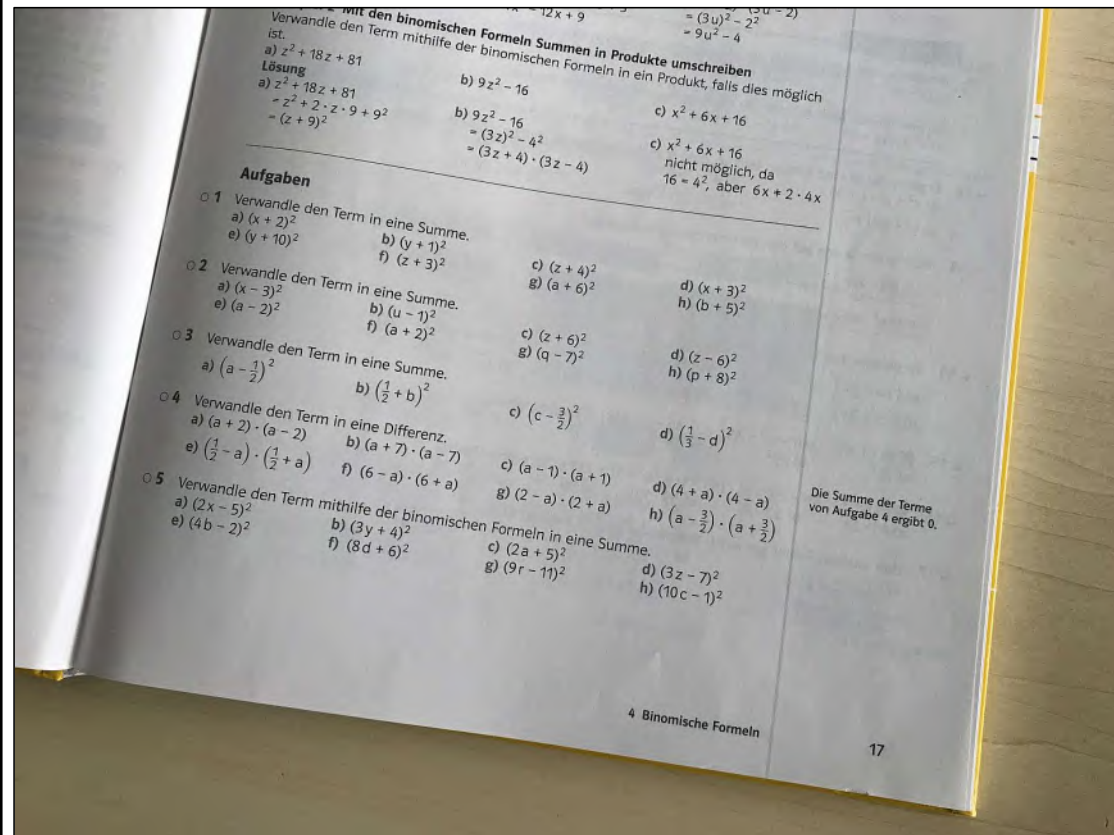 12x + 9
(3u - 2)
= (3u)² - 2²
= 9u² - 4
Mit den binomischen Formeln Summen in Produkte umschreiben
Verwandle den Term mithilfe der binomischen Formeln in ein Produkt, falls dies möglich
ist.
a) z² + 18z + 81 b) 9z² - 16 c) x² + 6x + 16
Lösung
a) z² + 18z + 81 b) 9z² - 16 c) x² + 6x + 16
= z² + 2 · z · 9 + 9² = (3z)² - 4² nicht möglich, da
= (z + 9)² = (3z + 4) · (3z - 4) 16 = 4², aber 6x ≠ 2 · 4x
Aufgaben
○ 1 Verwandle den Term in eine Summe.
a) (x + 2)² b) (y + 1)² c) (z + 4)² d) (x + 3)²
e) (y + 10)² f) (z + 3)² g) (a + 6)² h) (b + 5)²
○ 2 Verwandle den Term in eine Summe.
a) (x - 3)² b) (u - 1)² c) (z + 6)² d) (z - 6)²
e) (a - 2)² f) (a + 2)² g) (q - 7)² h) (p + 8)²
○ 3 Verwandle den Term in eine Summe.
a) (a - 1/2)² b) (1/2 + b)² c) (c - 3/2)² d) (1/3 - d)²
○ 4 Verwandle den Term in eine Differenz.
a) (a + 2) · (a - 2) b) (a + 7) · (a - 7) c) (a - 1) · (a + 1) d) (4 + a) · (4 - a)
e) (1/2 - a) · (1/2 + a) f) (6 - a) · (6 + a) g) (2 - a) · (2 + a) h) (a - 3/2) · (a + 3/2)
Die Summe der Terme
von Aufgabe 4 ergibt 0.
○ 5 Verwandle den Term mithilfe der binomischen Formeln in eine Summe.
a) (2x - 5)² b) (3y + 4)² c) (2a + 5)² d) (3z - 7)²
e) (4b - 2)² f) (8d + 6)² g) (9r - 11)² h) (10c - 1)²
4 Binomische Formeln
17